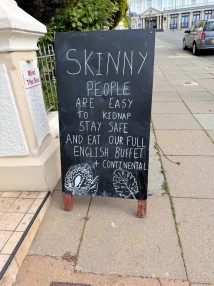 SKINNY
PEOPLE
ARE EASY
TO KIDNAP
STAY SAFE
AND EAT OUR FULL
ENGLISH BUFFET
+ CONTINENTAL
Mind
The Step